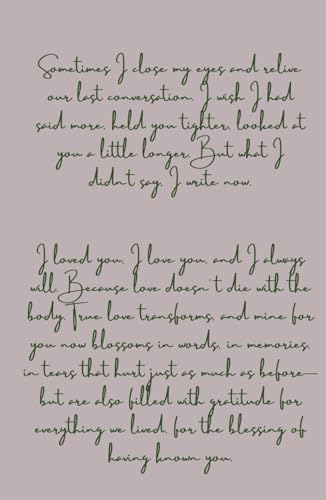 Sometimes I close my eyes and relive
our last conversation. I wish I had
said more, held you tighter, looked at
you a little longer. But what I
didn't say, I write now.
I loved you, I love you, and I always
will. Because love doesn't die with the
body. True love transforms, and mine for
you now blossoms in words, in memories,
in tears that hurt just as much as before—
but are also filled with gratitude for
everything we lived, for the blessing of
having known you.